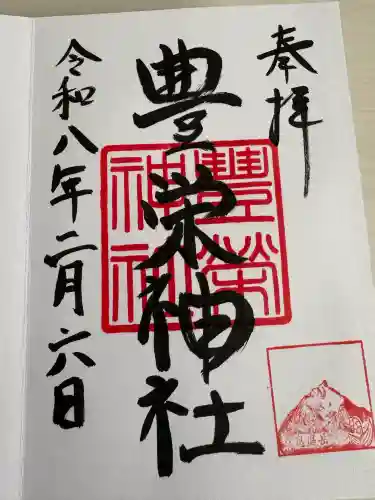 奉拝
豊栄神社
豐榮
神社
令和八年二月六日